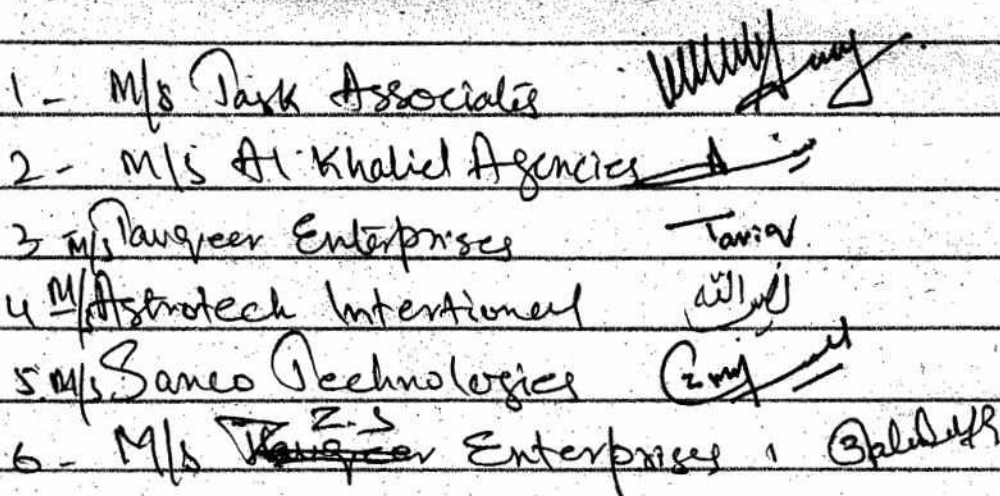 1 - M/s Task Associates
2 - M/s Al Khalid Agencies
3 M/s Tauqeer Enterprises Tariq
4 M/s Astrotech Intertional
5. M/s Sanco Technologies
6 - M/s Z.J Enterprises